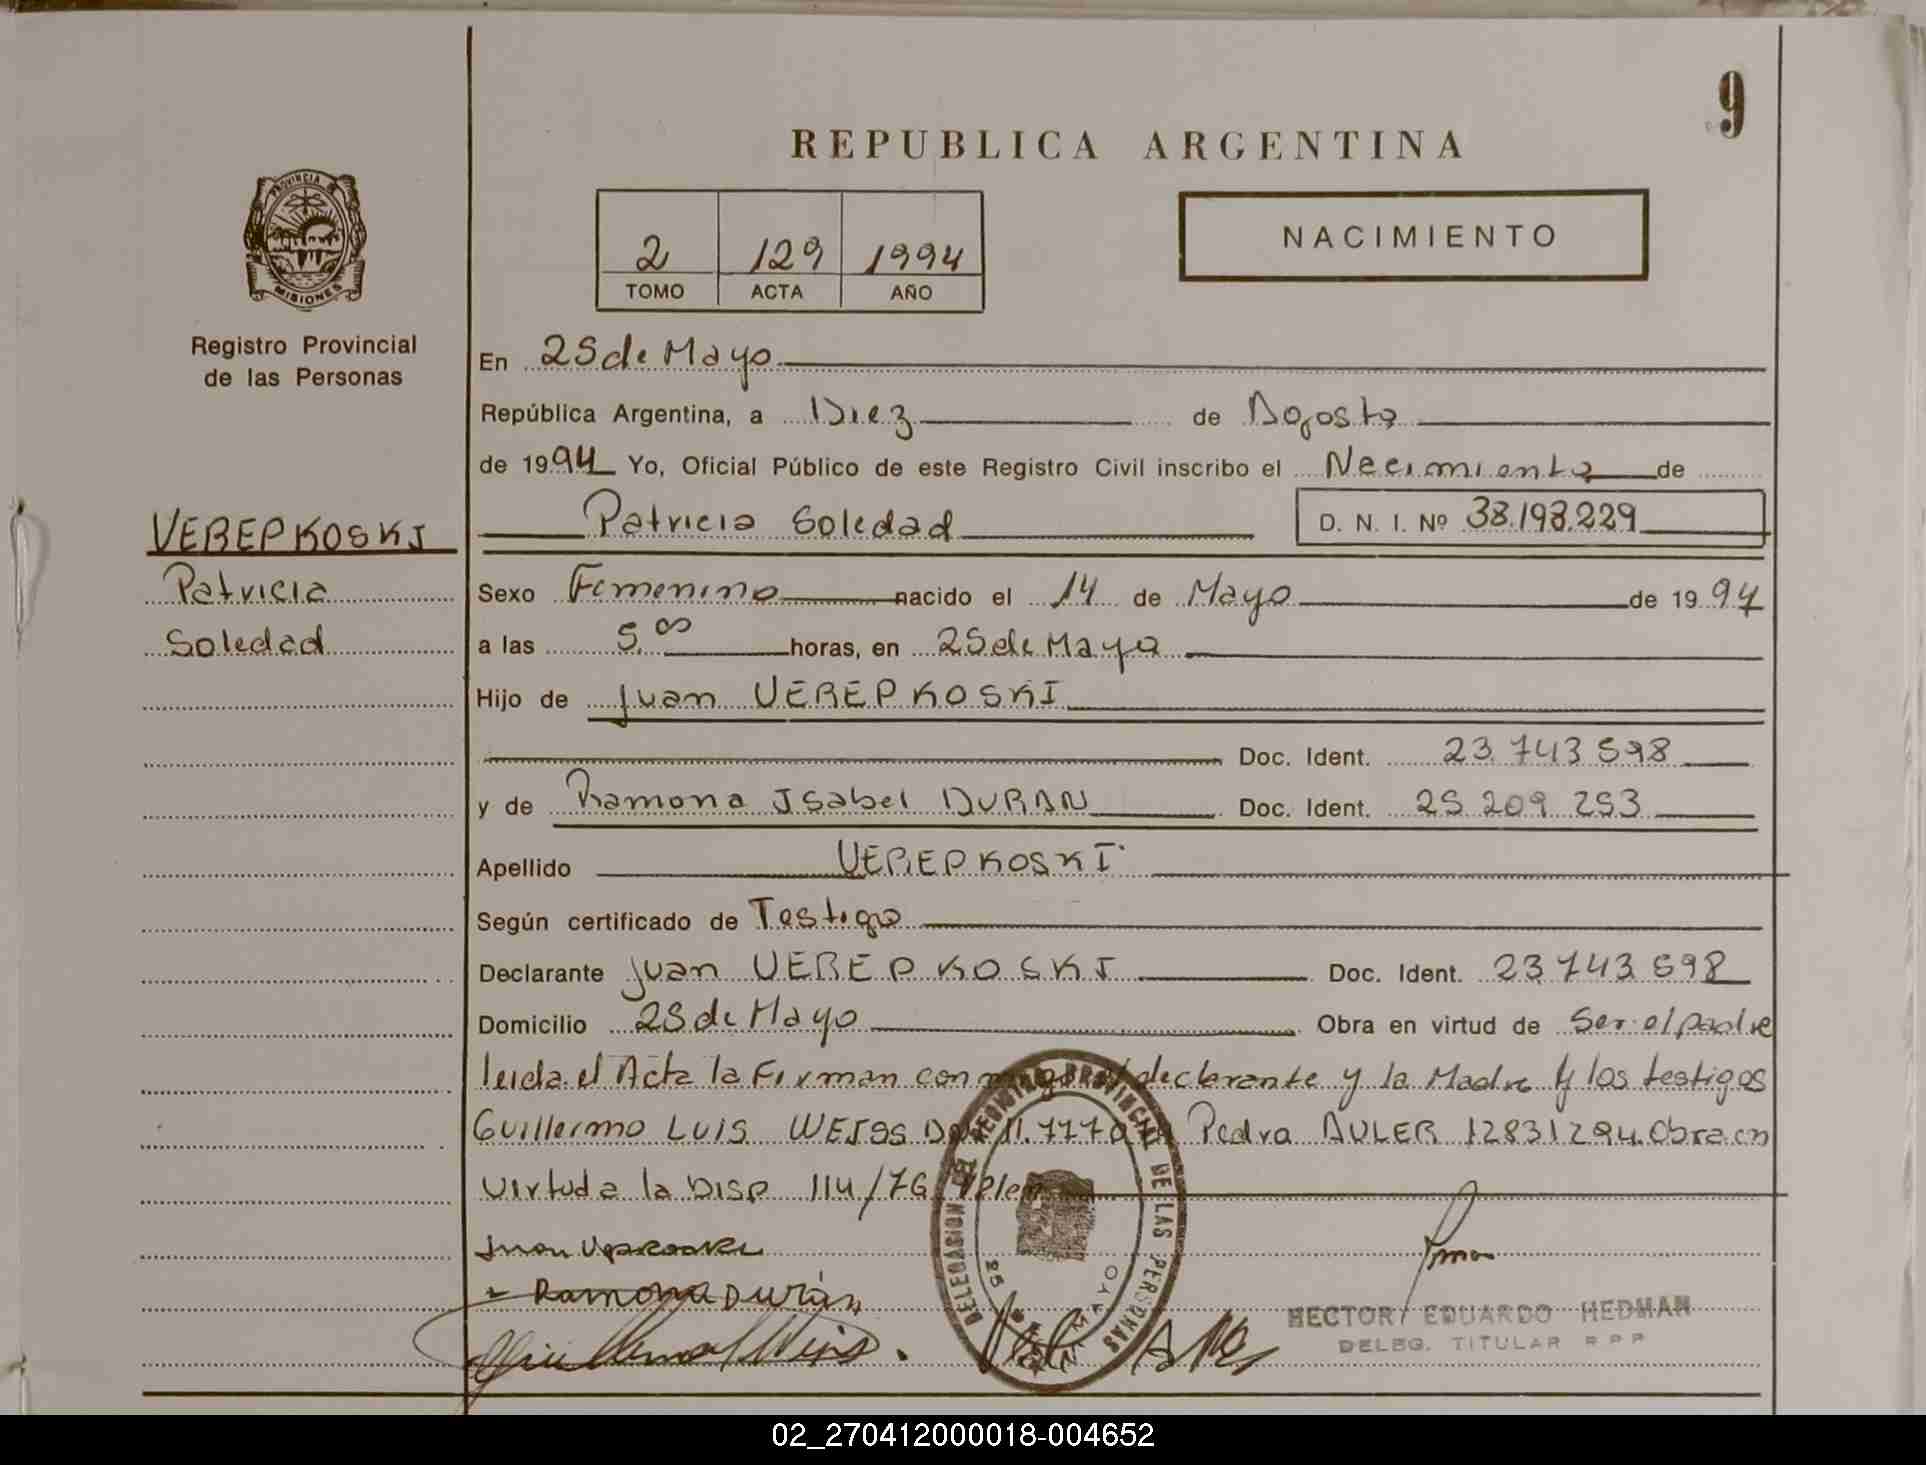 9
REPUBLICA ARGENTINA
PROVINCIA DE
MISIONES
2 129 1994
TOMO ACTA AÑO
NACIMIENTO
Registro Provincial
de las Personas
En 25 de Mayo
República Argentina, a Diez de Agosto
de 1994 Yo, Oficial Público de este Registro Civil inscribo el Nacimiento de
VEREPKOSKI
Patricia Soledad D. N. I. Nº 38.198.229
Patricia
Sexo Femenino nacido el 14 de Mayo de 1994
Soledad
a las 5,00 horas, en 25 de Mayo
Hijo de Juan VEREPKOSKI
Doc. Ident. 23.743.598
y de Ramona Isabel DURAN Doc. Ident. 25.209.253
Apellido VEREPKOSKI
Según certificado de Testigo
Declarante Juan VEREPKOSKI Doc. Ident. 23.743.598
Domicilio 25 de Mayo Obra en virtud de Ser el padre
leida el Acta la Firman conmigo el declarante y la Madre y los testigos
Guillermo LUIS WEISS 11.777 Pedro AULER 12831294. Obra en
virtud a la Disp 114/76
DELEGASION DEL REGISTRO PROVINCIAL DE LAS PERSONAS
25 DE MAYO
Ramona Durán
HECTOR EDUARDO HEDMAN
DELEG. TITULAR R P P
02_270412000018-004652